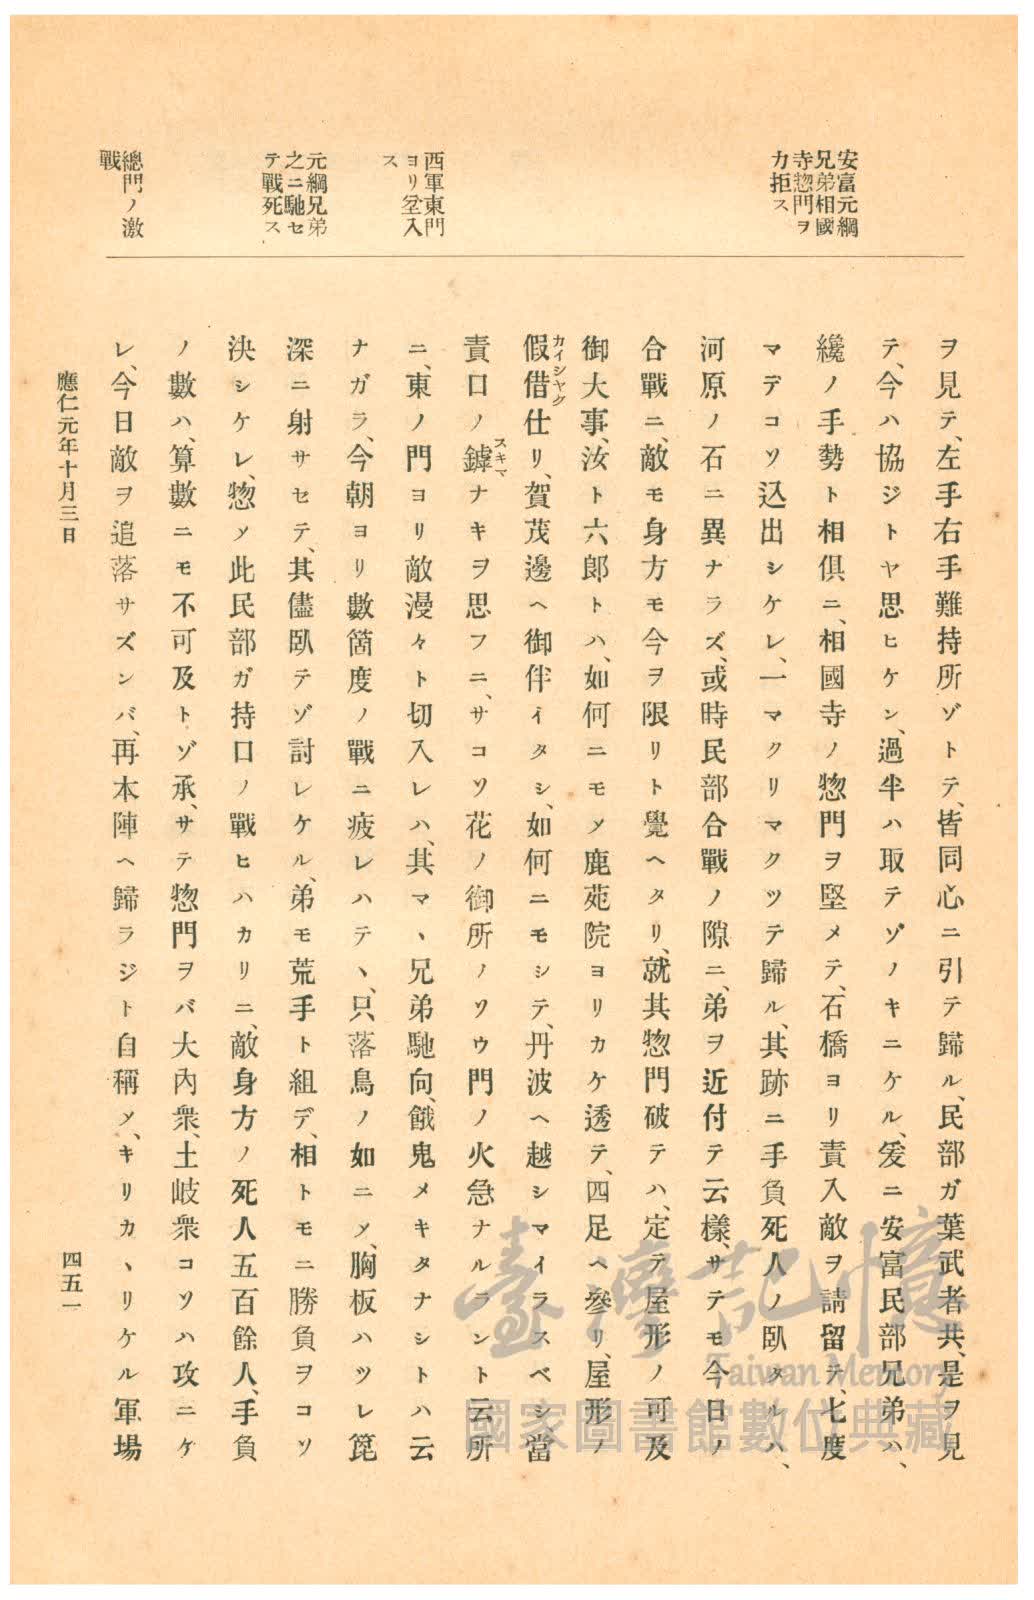 安富元綱
兄弟相國
寺惣門ヲ
力拒ス
西軍東門
ヨリ亂入
ス
元綱兄弟
之ニ馳セ
テ戰死ス
總門ノ激
戰
ヲ見テ、左手右手難持所ゾトテ、皆同心ニ引テ歸ル、民部ガ葉武者共、是ヲ見
テ、今ハ協ジトヤ思ヒケン、過半ハ取テゾノキニケル、爰ニ安富民部兄弟ハ、
纔ノ手勢ト相俱ニ、相國寺ノ惣門ヲ堅メテ、石橋ヨリ責入敵ヲ請留テ、七度
マデコソ込出シケレ、一マクリマクツテ歸ル、其跡ニ手負死人ノ臥タルハ、
河原ノ石ニ異ナラズ、或時民部合戰ノ隙ニ、弟ヲ近付テ云樣、サテモ今日ノ
合戰ニ、敵モ身方モ今ヲ限リト覺ヘタリ、就其惣門破テハ、定テ屋形ノ可及
御大事、汝ト六郎トハ、如何ニモメ鹿苑院ヨリカケ透テ、四足ヘ參リ、屋形ノ
假借仕リ、賀茂邊ヘ御伴イタシ、如何ニモシテ、丹波ヘ越シマイラスベシ、當
カイシヤク
責口ノ鏬ナキヲ思フニ、サコソ花ノ御所ノソウ門ノ火急ナルラント云所
スキマ
ニ、東ノ門ヨリ敵漫々ト切入レハ、其マヽ兄弟馳向、餓鬼メキタナシトハ云
ナガラ、今朝ヨリ數箇度ノ戰ニ疲レハテヽ、只落鳥ノ如ニメ、胸板ハツレ箆
深ニ射サセテ、其儘臥テゾ討レケル、弟モ荒手ト組デ、相トモニ勝負ヲコソ
決シケレ、惣メ此民部ガ持口ノ戰ヒハカリニ、敵身方ノ死人五百餘人、手負
ノ數ハ、算數ニモ不可及トゾ承、サテ惣門ヲバ大內衆、土岐衆コソハ攻ニケ
レ、今日敵ヲ追落サズンバ、再本陣ヘ歸ラジト自稱メ、キリカヽリケル軍場
應仁元年十月三日
四五一
臺灣記憶
Taiwan Memory
國家圖書館數位典藏